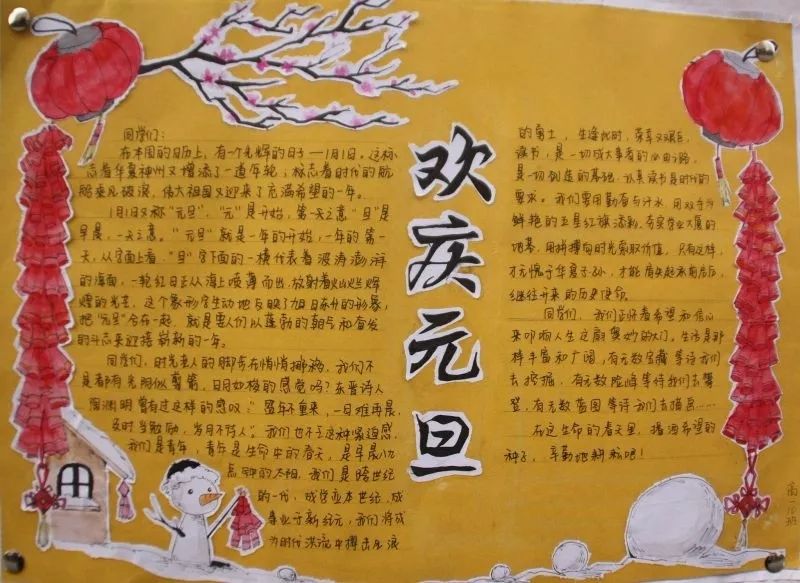 欢庆元旦
同学们：
在本国的日历上，有一个光辉的日子——1月1日。这标
志着华夏神州又增添了一道年轮；标志着时代的航
船乘风破浪，伟大祖国又迎来了充满希望的一年。
1月1日又称"元旦"，"元"是开始，第一天之意"旦"是
早晨，一天之意。"元旦"就是一年的开始，一年的第一
天，从字面上看，"旦"字下面的一横代表着波涛澎湃
的海面，一轮红日正从海上喷薄而出，放射着火灿烂辉
煌的光芒，这个象形字生动地反映了旭日东升的形象，
把"元旦"合在一起，就是要人们以蓬勃的朝气和奋发
的斗志来迎接崭新的一年。
同学们，时光老人的脚步在悄悄挪移，我们不
是都有光阴似箭，日月如梭的感觉吗？东晋诗人
陶渊明曾有过这样的感叹："盛年不重来，一日难再晨，
及时当勉励，岁月不待人"。我们也不乏这种紧迫感，
我们是青年，青年是生命中的春天，是早晨八九
点钟的太阳，我们是跨世纪
的一代，成学业本世纪，成
事业于新纪元，我们将成
为时代洪流中搏击风浪
的勇士，生逢此时，荣幸又艰巨，
读书，是一切成大事者的必由之路，
是一切创造的基础，认真读书是时代的
要求。我们要用勤奋与汗水，用双手为
鲜艳的五星红旗添彩，夯实学业大厦的
地基，用拼搏向时光索取价值，只有这样，
才无愧于华夏子孙，才能肩负起承前启后，
继往开来的历史使命。
同学们，我们正怀着希望和信心
来叩响人生这扇奥妙的大门，生活是那
样丰富和广阔，有无数宝藏等待我们
去挖掘，有无数险峰等待我们去攀
登，有无数蓝图等待我们去描画……
在这生命的春天里，播洒希望的
种子，辛勤地耕耘吧！
高一10班